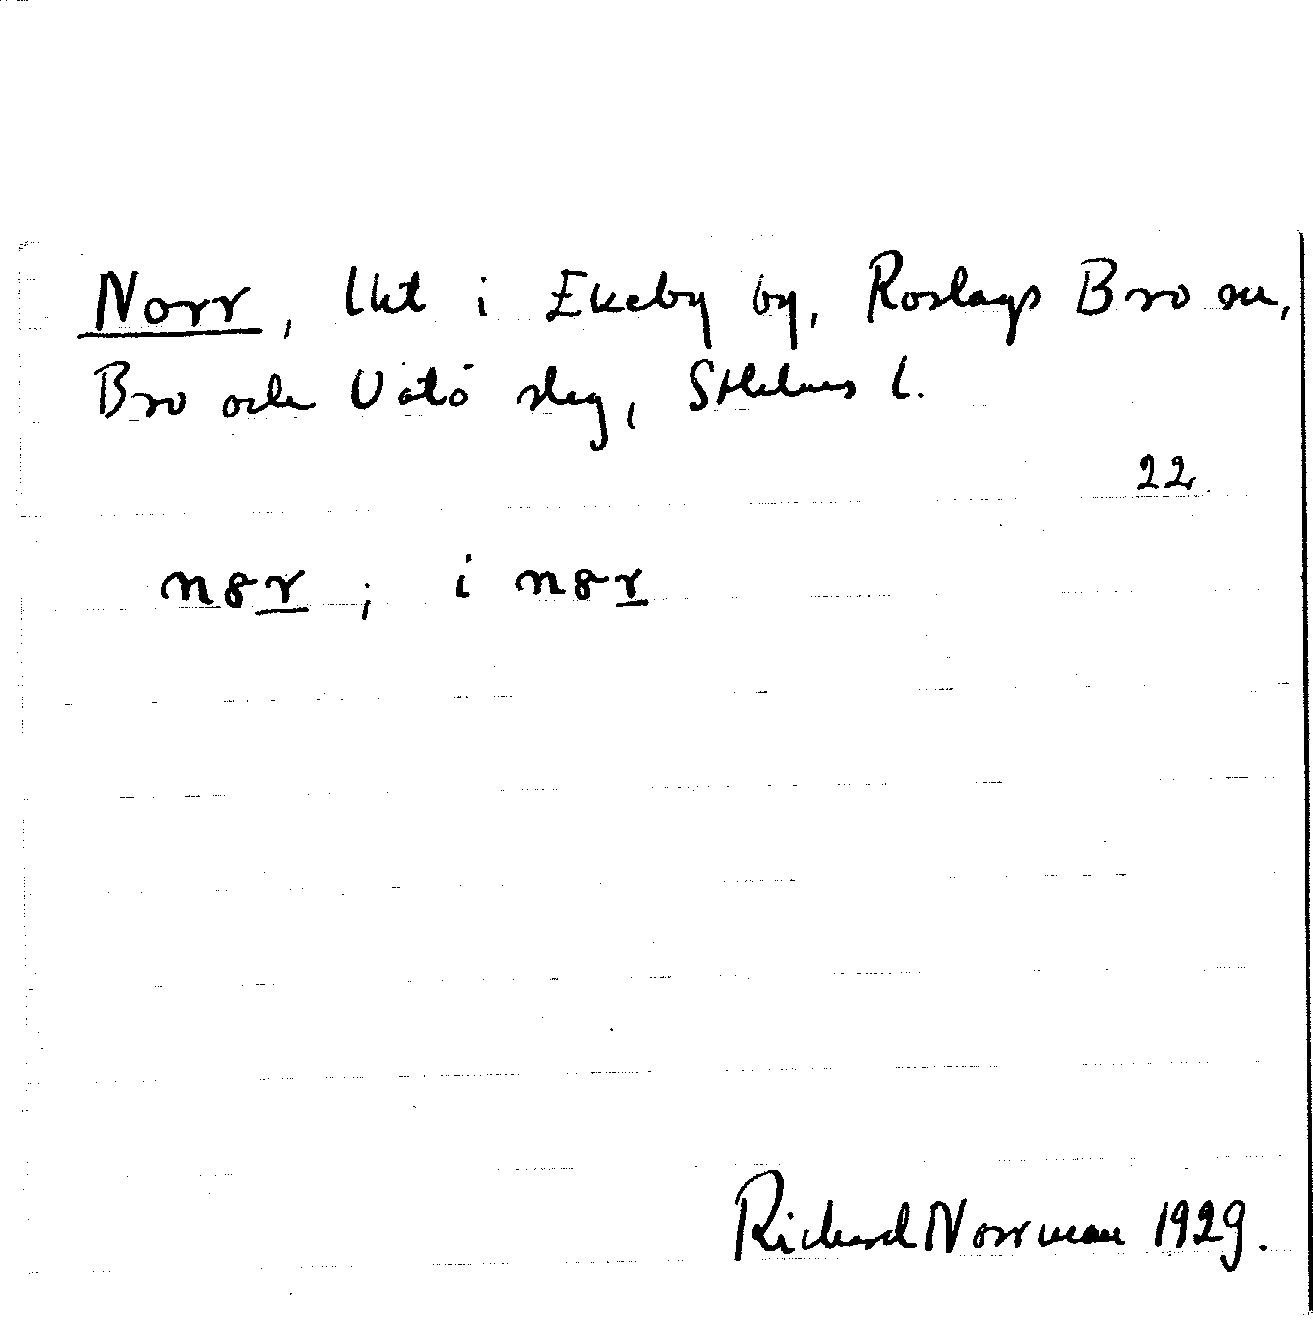 Norr, lkt i Ekeby by, Roslags Bro sn,
Bro och Vätö slag, Sthlms l.
22
n8r ; i n8r
Richard Norrman 1929.